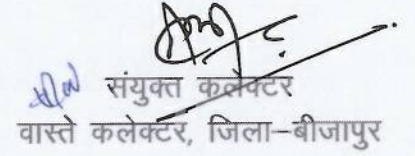 संयुक्त कलेक्टर
वास्ते कलेक्टर, जिला–बीजापुर